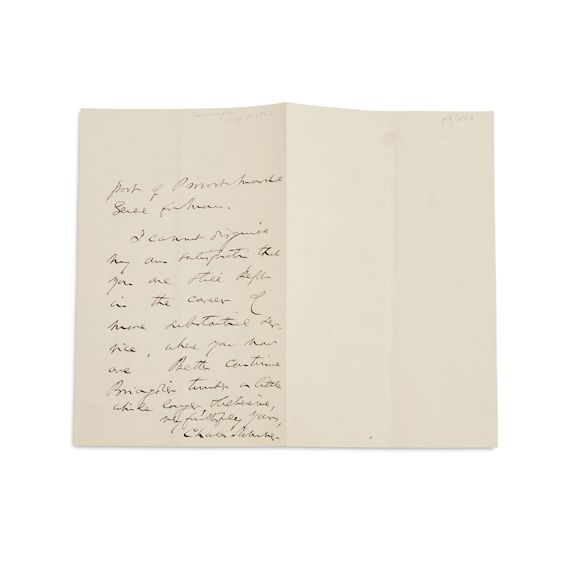 Aug 9. 1863
post of Provost Marshal
Genl for them.
I cannot disguise
my own satisfaction that
you are still kept
in the career of
more substantial ser-
vice, where you now
are Better continue
Brigadier a little
while longer.
very faithfully yours,